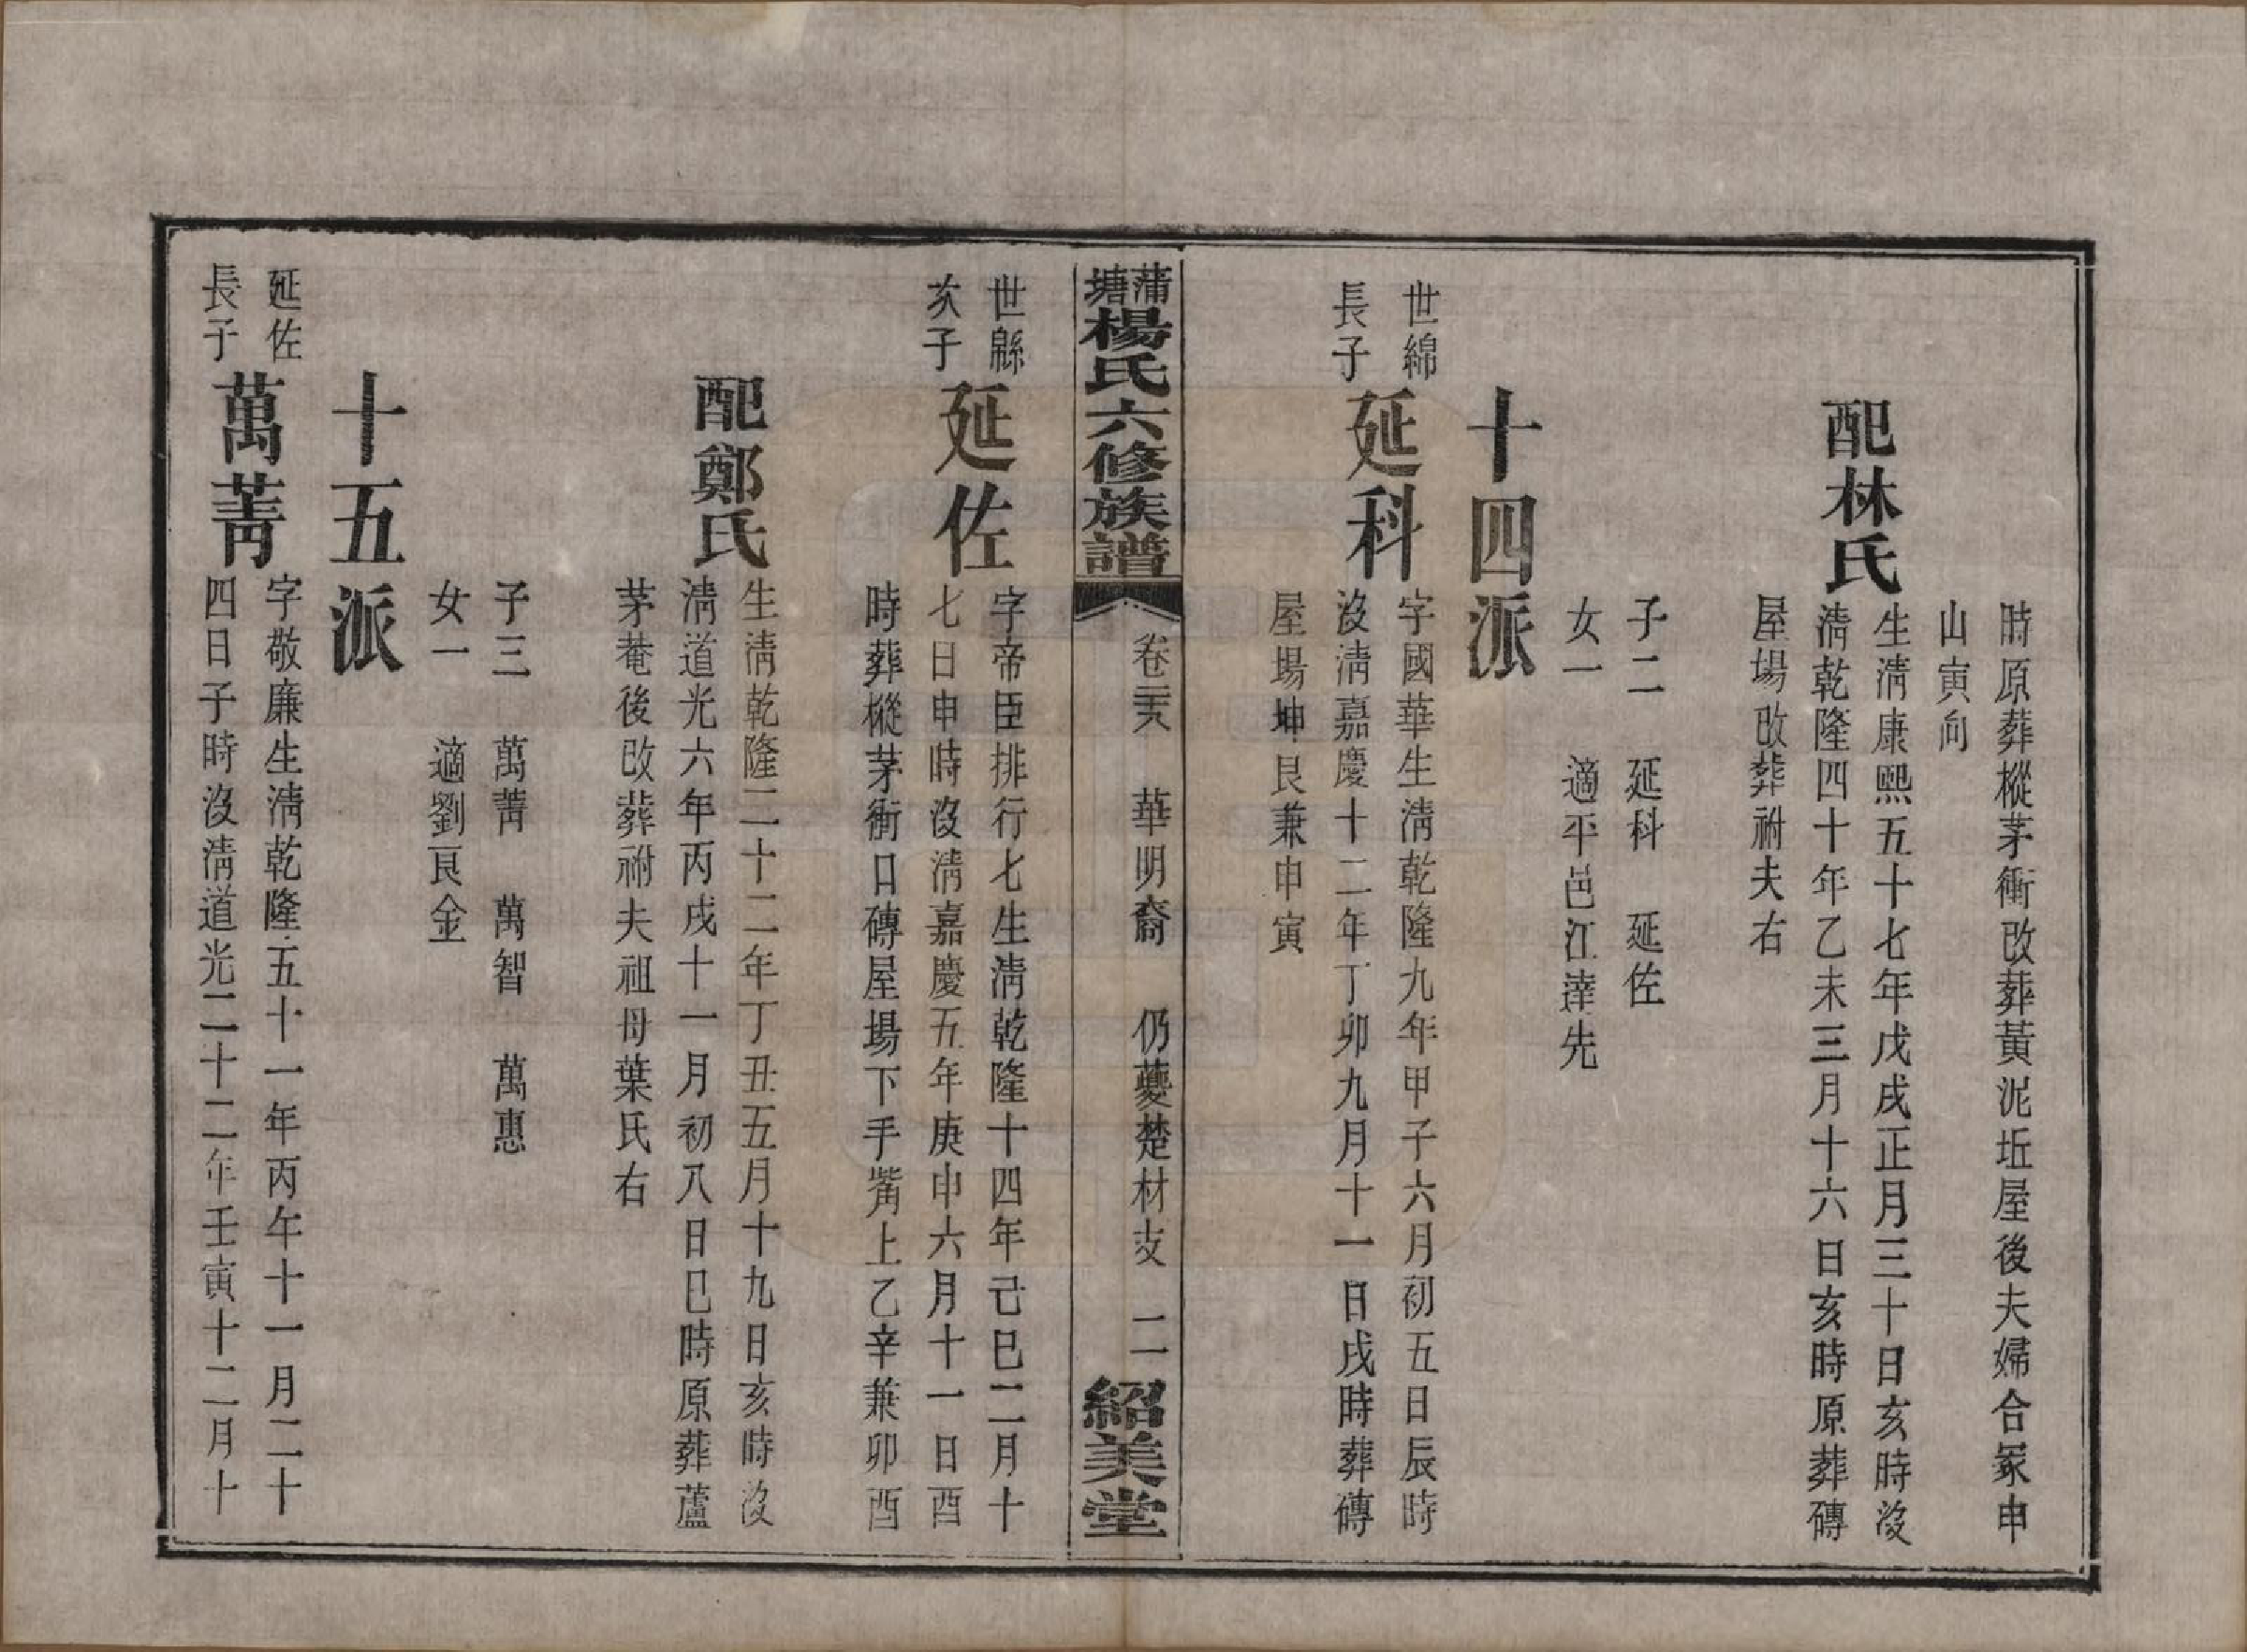 時原葬樅茅衝改葬黃泥坵屋後夫婦合冢申
山寅向
配林氏
生淸康熙五十七年戊戌正月三十日亥時沒
淸乾隆四十年乙未三月十六日亥時原葬磚
屋場改葬祔夫右
子二　延科　延佐
女一　適平邑江達先
十四派
世綿
長子
延科
字國華生淸乾隆九年甲子六月初五日辰時
沒淸嘉慶十二年丁卯九月十一日戌時葬磚
屋場坤艮兼申寅
蒲塘楊氏六修族譜
卷三六　華明裔　仍夔楚材支　二
紹美堂
世緜
次子
延佐
字帝臣排行七生淸乾隆十四年己巳二月十
七日申時沒淸嘉慶五年庚申六月十一日酉
時葬樅茅衝口磚屋場下手觜上乙辛兼卯酉
配鄭氏
生淸乾隆二十二年丁丑五月十九日亥時沒
淸道光六年丙戌十一月初八日巳時原葬蘆
茅菴後改葬祔夫祖母葉氏右
子三　萬菁　萬智　萬惠
女一　適劉良金
十五派
延佐
長子
萬菁
字敬廉生淸乾隆五十一年丙午十一月二十
四日子時沒淸道光二十二年壬寅十二月十